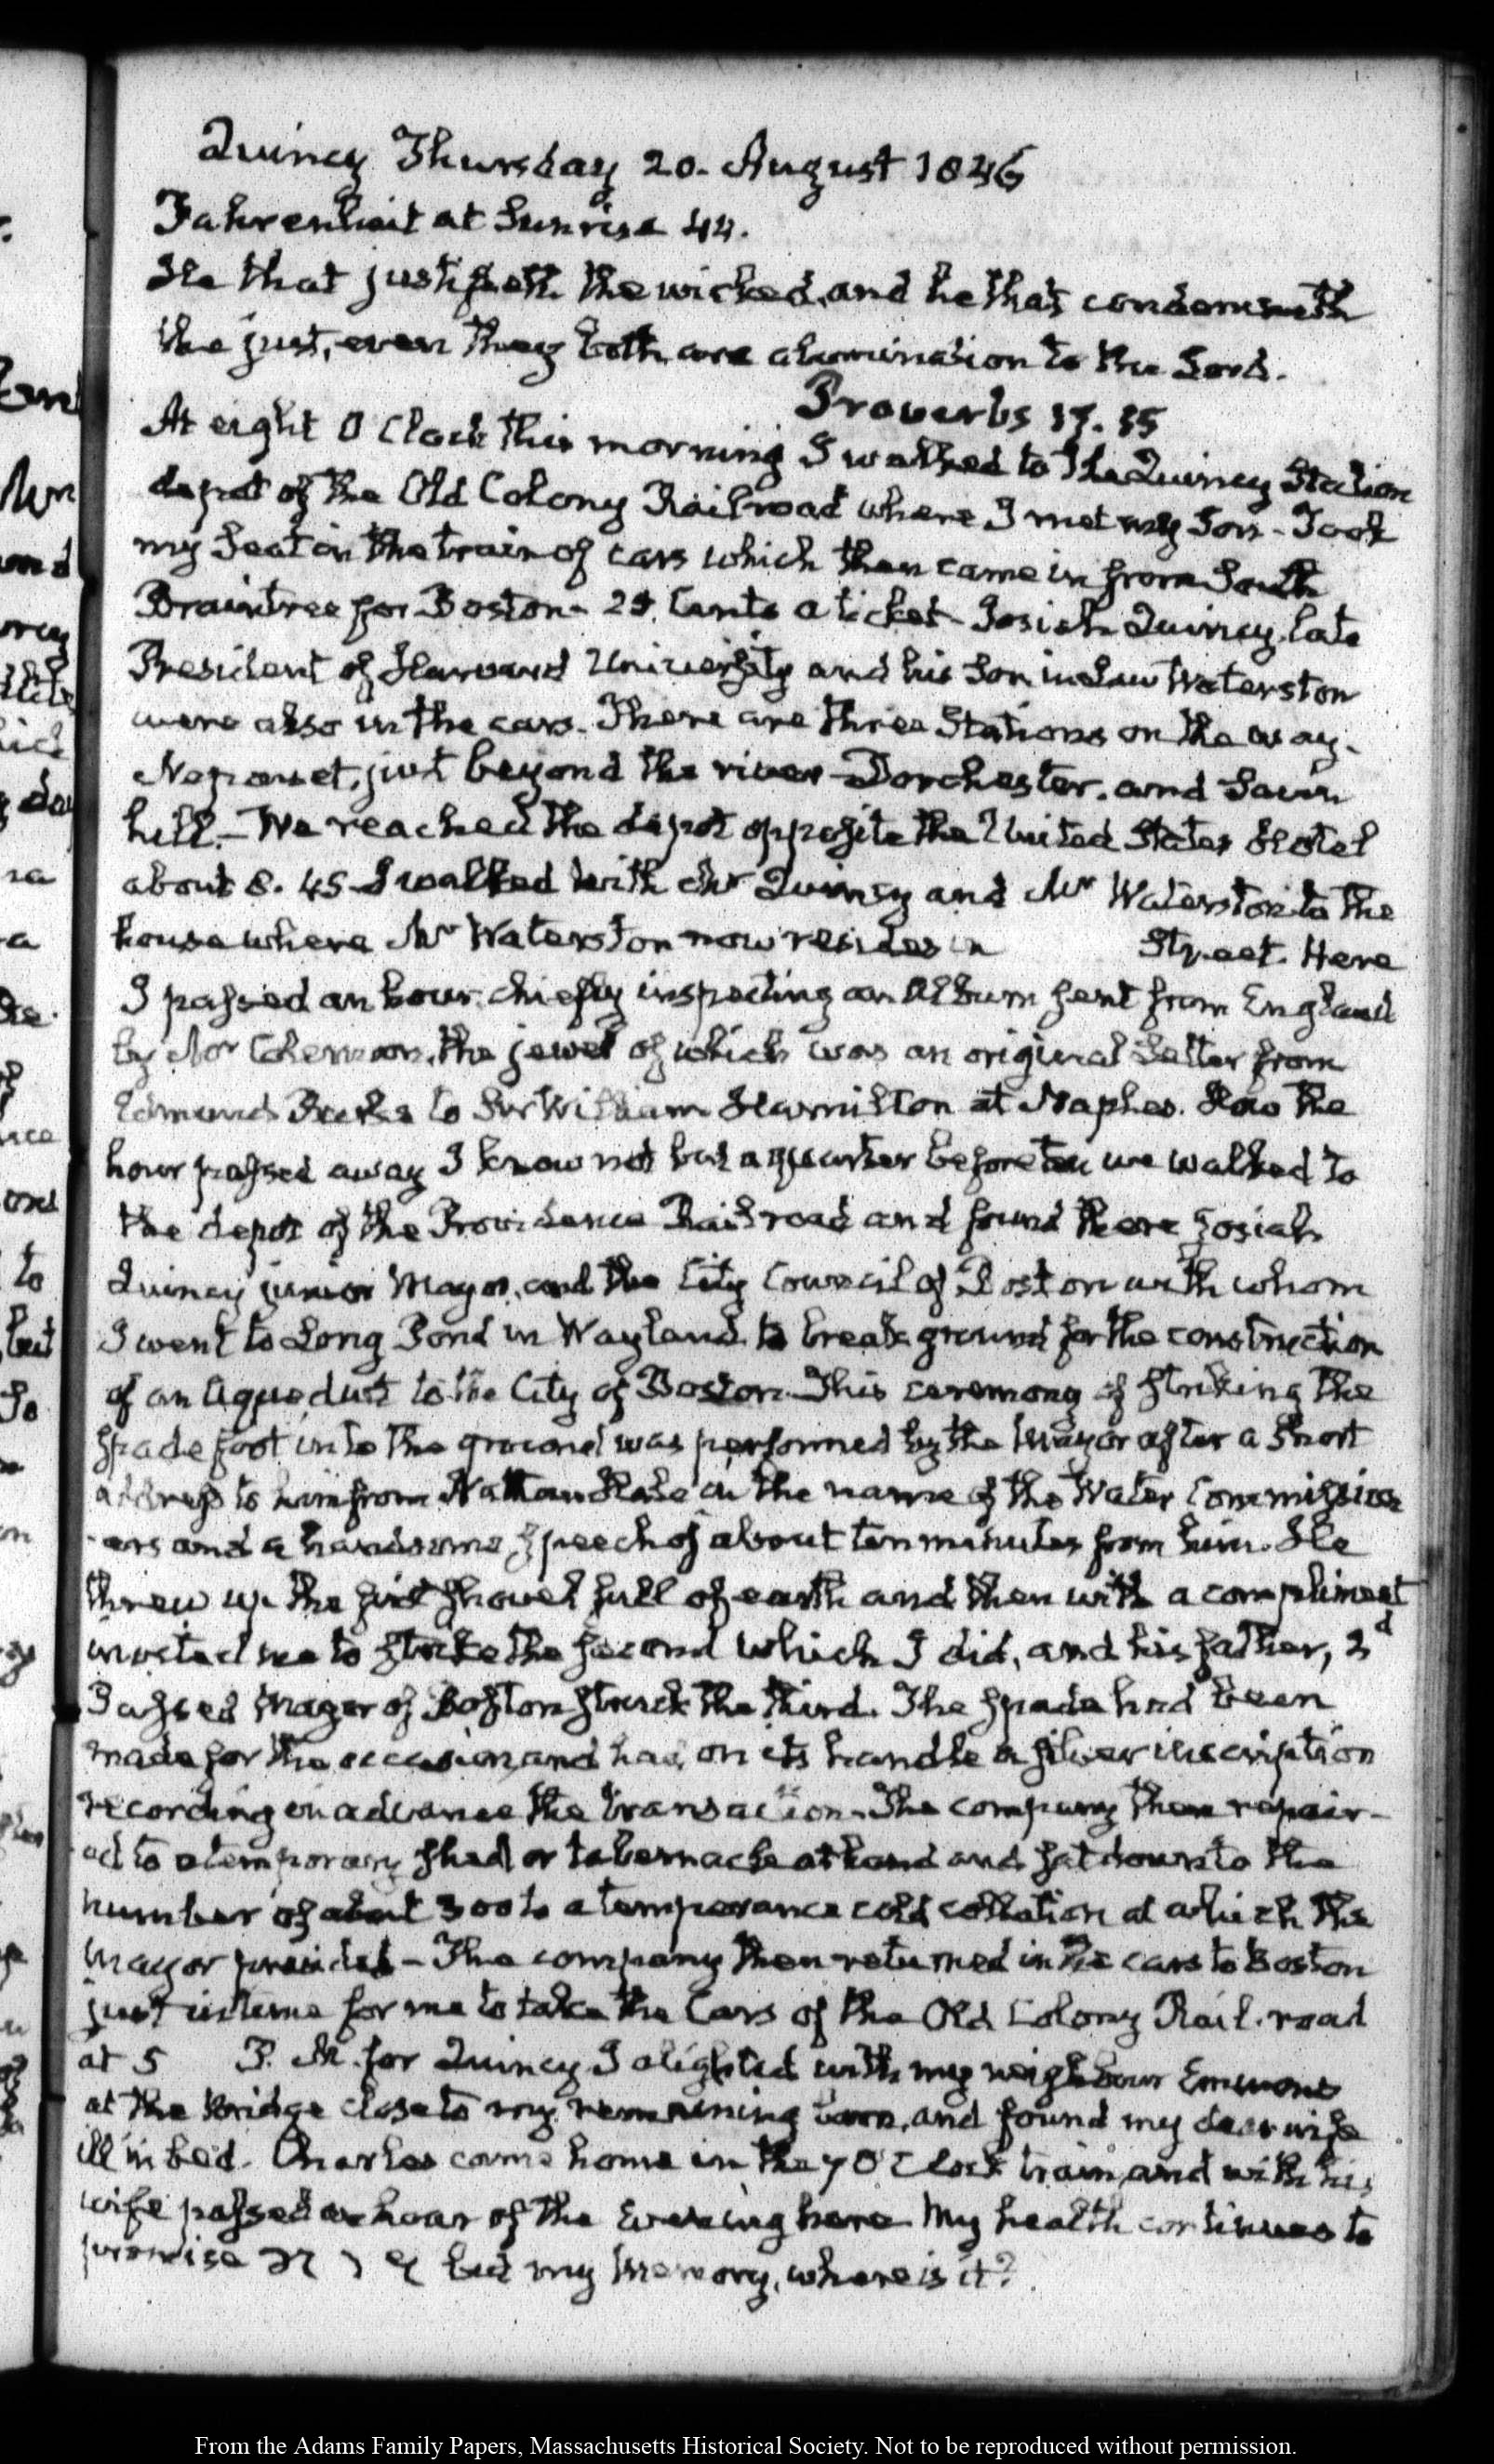 Quincy Thursday 20. August 1846
Fahrenheit at Sunrise 44.
He that justifieth the wicked, and he that condemneth
the just, even they both are abomination to the Lord.
Proverbs 17. 15
At eight O Clock this morning I walked to the Quincy Station
depot of the Old Colony Railroad where I met my Son - Took
my seat in the train of cars which then came in from South
Braintree for Boston - 25 Cents a ticket - Josiah Quincy late
President of Harvard University and his Son in Law Waterston
were also in the cars. There are three Stations on the way.
Neponset, just beyond the river - Dorchester, and Savin
hill. - We reached the depot opposite the United States Hotel
about 8. 45 I walked with Mr Quincy and Mr Waterston to the
house where Mr Waterston now resides in Street. Here
I passed an hour chiefly inspecting an Album sent from England
by the jewel of which was an original Letter from
Edmund Burke to Sir William Hamilton at Naples. How the
hour passed away I know not but a quarter before ten we walked to
the depot of the Providence Railroad and found there Josiah
Quincy junior Mayor, and the City Council of Boston with whom
I went to Long Pond in Wayland to break ground for the construction
of an Aqueduct to the City of Boston. This ceremony of striking the
spade foot into the ground was performed by the Mayor after a short
address to him from Nathan Hale in the name of the Water Commission
-ers and a handsome Speech of about ten minutes from him. He
threw up the first shovel full of earth and then with a compliment
invited me to strike the second which I did, and his father, 2d
Passed Mayor of Boston struck the third. The spade had been
made for the occasion, and had, on its handle a silver inscription
recording in advance the transaction. The company then repair-
ed to a temporary shed or tabernacle at hand and sat down to the
number of about 300 to a temperance cold collation at which the
Mayor presided - The company then returned in the cars to Boston
just in time for me to take the Cars of the Old Colony Rail-road
at 5 P. M. for Quincy I alighted with my neighbour Emmons
at the Bridge close to my remaining barn, and found my dear wife
ill in bed. Charles came home in the 7 O'Clock train, and with his
wife passed an hour of the Evening here My health continues to
promise but my memory, where is it?
From the Adams Family Papers, Massachusetts Historical Society. Not to be reproduced without permission.